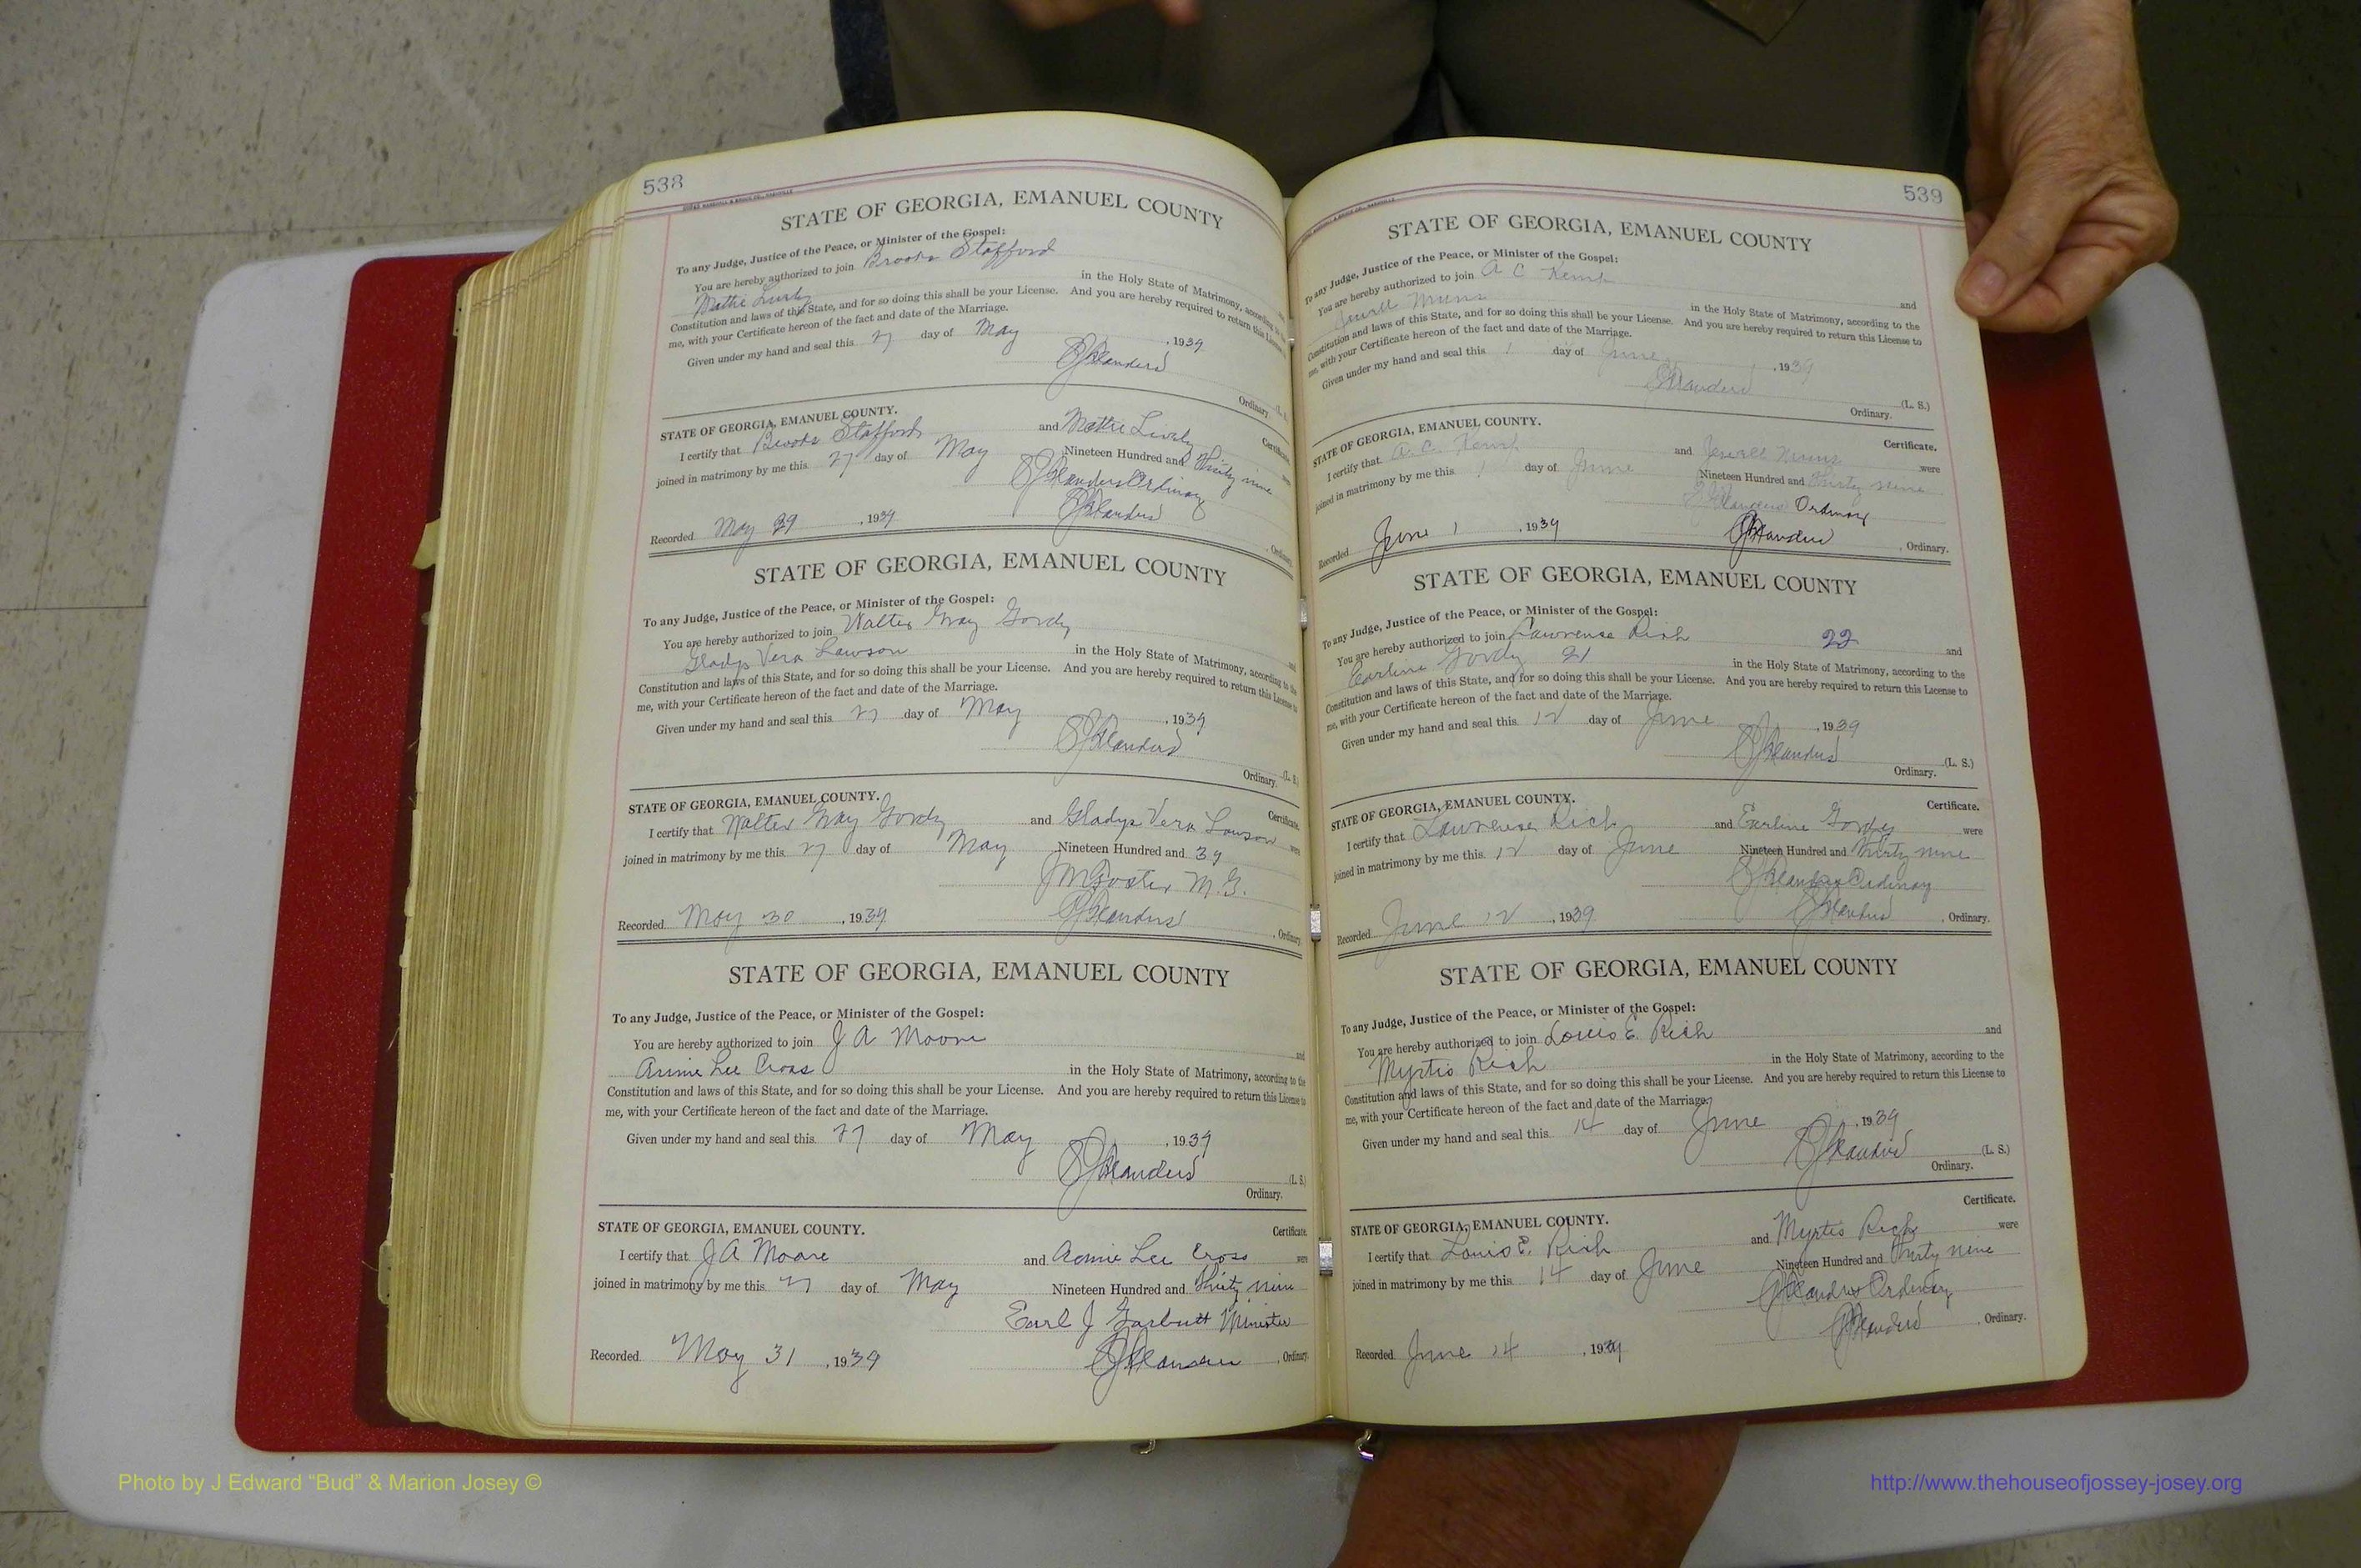 538
STATE OF GEORGIA, EMANUEL COUNTY
To any Judge, Justice of the Peace, or Minister of the Gospel:
You are hereby authorized to join Brooks Stafford
Mattie Lively in the Holy State of Matrimony, according to the
Constitution and laws of this State, and for so doing this shall be your License. And you are hereby required to return this License to
me, with your Certificate hereon of the fact and date of the Marriage.
Given under my hand and seal this 27 day of May, 1939
Ordinary. (L. S.
STATE OF GEORGIA, EMANUEL COUNTY. Certificate.
I certify that Brooks Stafford and Mattie Lively
joined in matrimony by me this 27 day of May Nineteen Hundred and Thirty nine
Ordinary
Recorded May 29, 1939, Ordinary.
STATE OF GEORGIA, EMANUEL COUNTY
To any Judge, Justice of the Peace, or Minister of the Gospel:
You are hereby authorized to join Walter Gray Gordy and
Gladys Vera Lawson in the Holy State of Matrimony, according to the
Constitution and laws of this State, and for so doing this shall be your License. And you are hereby required to return this License to
me, with your Certificate hereon of the fact and date of the Marriage.
Given under my hand and seal this 27 day of May, 1939
Ordinary. (L. S.)
STATE OF GEORGIA, EMANUEL COUNTY. Certificate.
I certify that Walter Gray Gordy and Gladys Vera Lawson were
joined in matrimony by me this 27 day of May Nineteen Hundred and 39
M. G.
Recorded May 30, 1939, Ordinary
STATE OF GEORGIA, EMANUEL COUNTY
To any Judge, Justice of the Peace, or Minister of the Gospel:
You are hereby authorized to join J A Moore and
Annie Lee Cross in the Holy State of Matrimony, according to the
Constitution and laws of this State, and for so doing this shall be your License. And you are hereby required to return this License to
me, with your Certificate hereon of the fact and date of the Marriage.
Given under my hand and seal this 27 day of May, 1939
(L. S.)
Ordinary.
STATE OF GEORGIA, EMANUEL COUNTY. Certificate.
I certify that J A Moore and Annie Lee Cross were
joined in matrimony by me this 27 day of May Nineteen Hundred and Thirty nine
Earl J Garbutt Minister
Recorded May 31, 1939, Ordinary
539
STATE OF GEORGIA, EMANUEL COUNTY
To any Judge, Justice of the Peace, or Minister of the Gospel:
You are hereby authorized to join A C Kemp and
Jewell in the Holy State of Matrimony, according to the
Constitution and laws of this State, and for so doing this shall be your License. And you are hereby required to return this License to
me, with your Certificate hereon of the fact and date of the Marriage.
Given under my hand and seal this 1 day of June, 1939
(L. S.)
Ordinary.
STATE OF GEORGIA, EMANUEL COUNTY. Certificate.
I certify that A. C. Kemp and Jewell were
joined in matrimony by me this 1 day of June Nineteen Hundred and Thirty nine
Ordinary
Recorded June 1, 1939, Ordinary.
STATE OF GEORGIA, EMANUEL COUNTY
To any Judge, Justice of the Peace, or Minister of the Gospel:
You are hereby authorized to join Lawrence Rich 22 and
Earline Gordy 21 in the Holy State of Matrimony, according to the
Constitution and laws of this State, and for so doing this shall be your License. And you are hereby required to return this License to
me, with your Certificate hereon of the fact and date of the Marriage.
Given under my hand and seal this 12 day of June, 1939
(L. S.)
Ordinary.
STATE OF GEORGIA, EMANUEL COUNTY. Certificate.
I certify that Lawrence Rich and Earline Gordy were
joined in matrimony by me this 12 day of June Nineteen Hundred and Thirty nine
Ordinary
Recorded June 12, 1939, Ordinary.
STATE OF GEORGIA, EMANUEL COUNTY
To any Judge, Justice of the Peace, or Minister of the Gospel:
You are hereby authorized to join Louis E. Rich and
Myrtis Rich in the Holy State of Matrimony, according to the
Constitution and laws of this State, and for so doing this shall be your License. And you are hereby required to return this License to
me, with your Certificate hereon of the fact and date of the Marriage.
Given under my hand and seal this 14 day of June, 1939
(L. S.)
Ordinary.
STATE OF GEORGIA, EMANUEL COUNTY. Certificate.
I certify that Louis E. Rich and Myrtis Rich were
joined in matrimony by me this 14 day of June Nineteen Hundred and Thirty nine
Ordinary
Recorded June 14, 1939, Ordinary.
Photo by J Edward “Bud” & Marion Josey ©
http://www.thehouseofjossey-josey.org